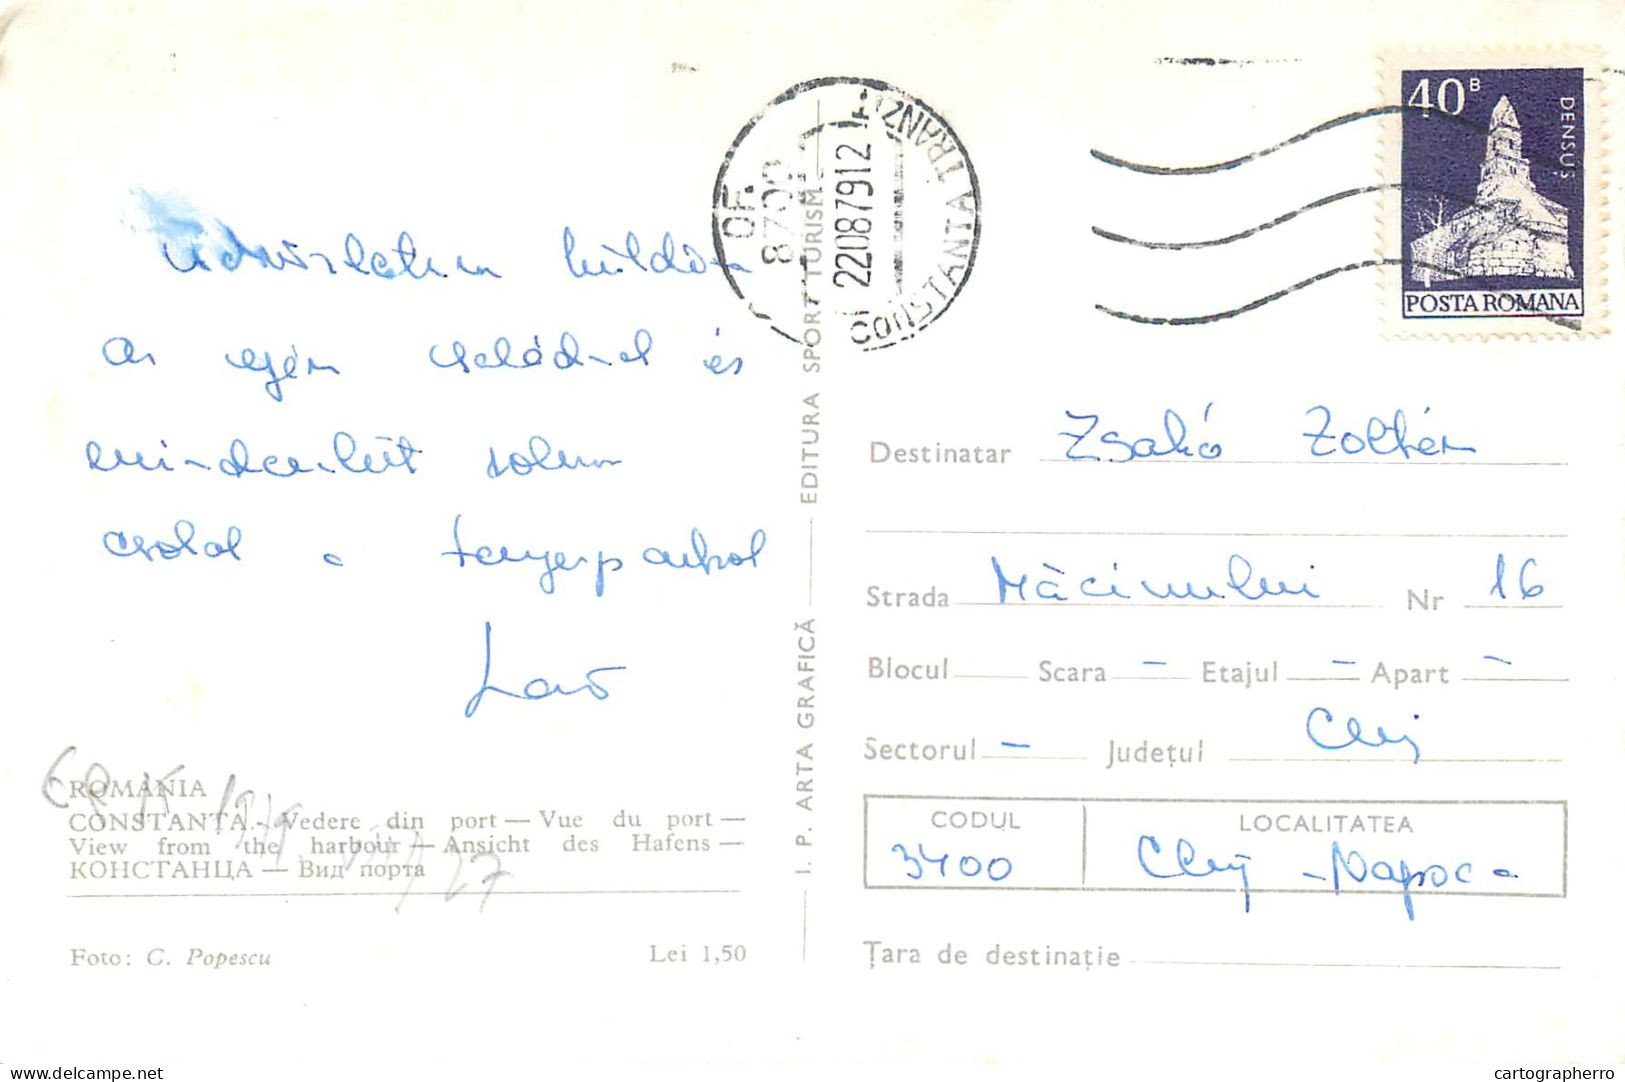 üdvözletem küldöm
az egész családnak és
mindenkit sokszor
csókol a
ROMANIA
CONSTANȚA.- Vedere din port — Vue du port —
View from the harbour — Ansicht des Hafens —
КОНСТАНЦА — Вид порта
Foto: C. Popescu
Lei 1,50
I. P. ARTA GRAFICĂ — EDITURA SPORT TURISM
OF.
8700
220879 12
CONSTANȚA TRANZIT
40B
DENSUȘ
POSTA ROMANA
Destinatar Zsakó Zoltán
Strada Măcinului Nr 16
Blocul Scara — Etajul — Apart —
Sectorul — Județul Cluj
CODUL LOCALITATEA
3400 Cluj-Napoca
Țara de destinație
delcampe.net
cartographerro